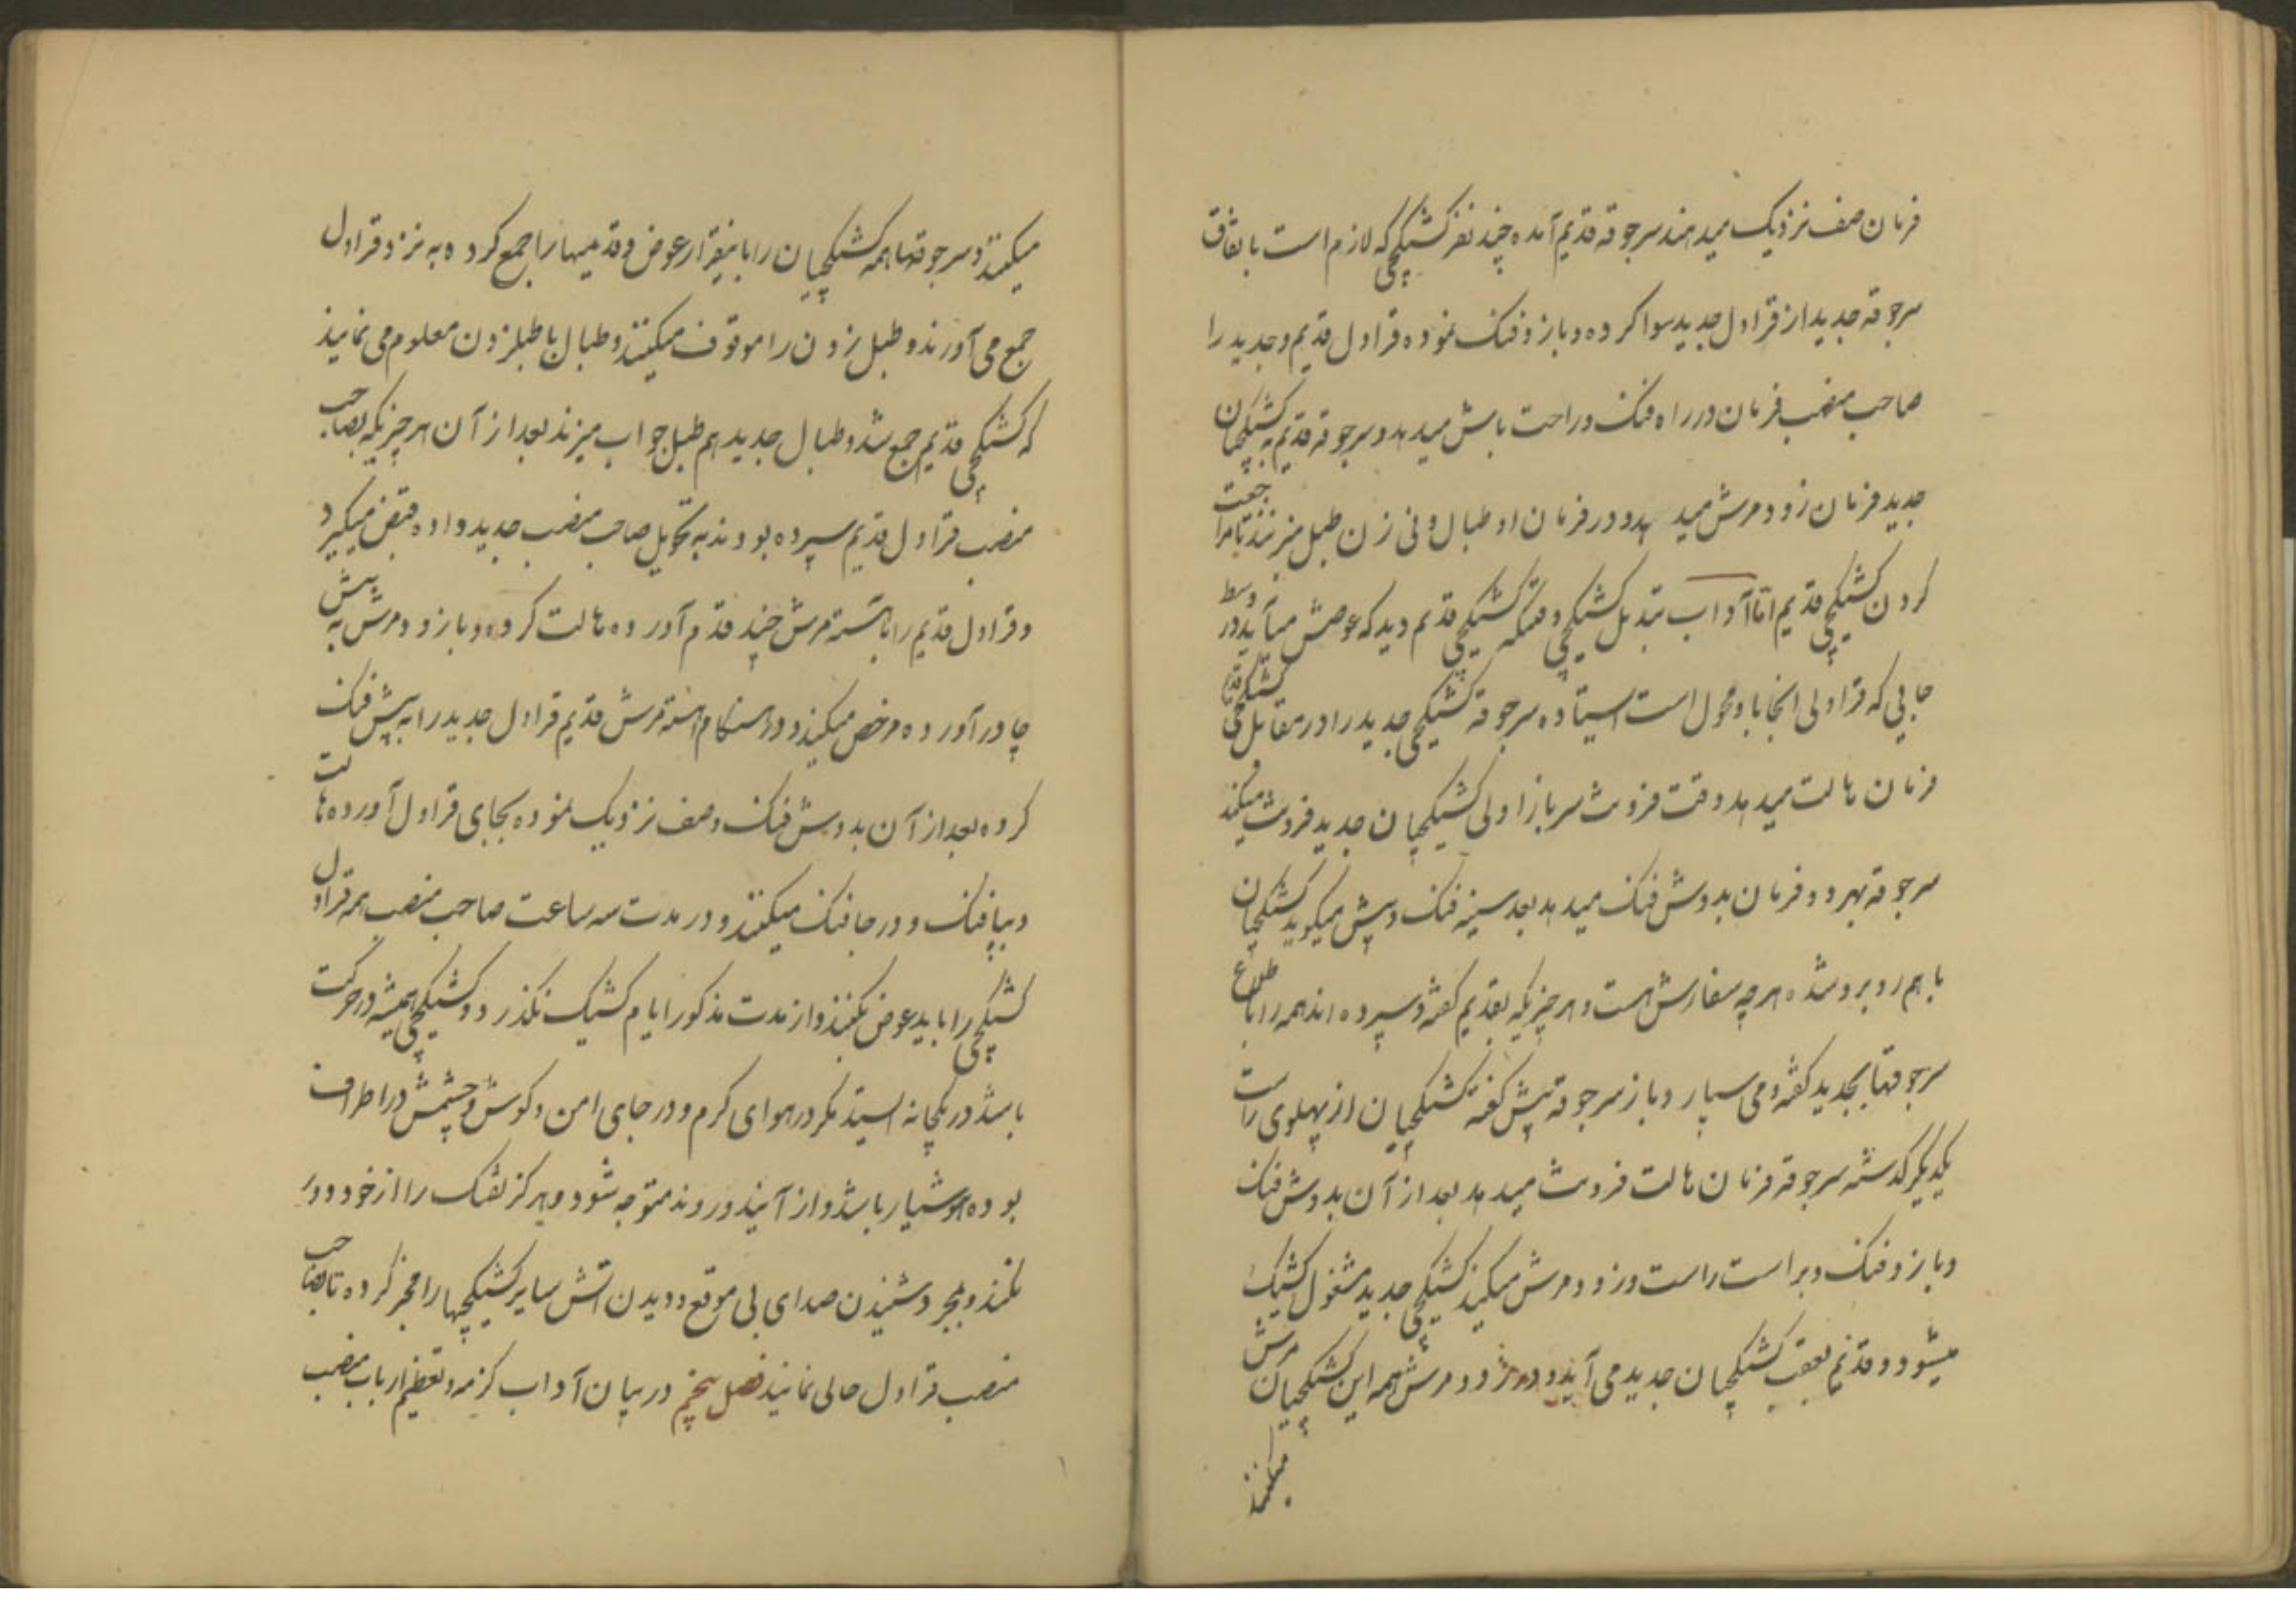 فرمان صف نزدیک میدهند سرجوقه قدیم آمده چند نفر کشیکچی که لازم است باتفاق
سرجوقه جدید از قراول جدید سوا کرده و بازو فنک نموده قراول قدیم و جدید را
صاحب منصب فرمان در راه فنک و راحت باش میدهد و سرجوقه قدیم به کشیکچیان
جدید فرمان زود مرش میدهد و در فرمان او طبال و نی زن طبل میزنند تا مراجعت
کردن کشیکچی قدیم امّا آداب تبدیل کشیکچی وقتیکه کشیکچی قدیم دید که عوضش میآید در وسط
جایی که قراولی آنجا باو محول است ایستاده سرجوقه کشیکچی جدید را در مقابل کشیکچی قدیم
فرمان هالت میدهد وقت فروشت سرباز اولی کشیکچیان جدید فروشت میکند
سرجوقه بهر دو فرمان بدوش فنک میدهد بعد سینه فنک و پیش میگوید کشیکچیان
با هم روبرو شده هرچه سفارش هست و هر چیزیکه بقدیم گفته و سپرده اند همه را با طلاع
سرجوقها بجدید گفته و می سپارد و باز سرجوقه پیش گفته کشیکچیان از پهلوی راست
یکدیگر گذشته سرجوقه فرمان هالت فروشت میدهد بعد از آن بدوش فنک
و بازو فنک و براست راست و زود مرش میکنند کشیکچی جدید مشغول کشیک
میشود و قدیم بعقب کشیکچیان جدید می آید و در زود مرش همه این کشیکچیان مرش
میکنند
میکنند و سرجوقها همه کشیکچیان را باینقرار عوض و قدیمیها را جمع کرده به نزد قراول
جمع می آورند و طبل زدن را موقوف میکنند و طبال با طبل زدن معلوم می نمایند
که کشیکچی قدیم جمع شد و طبال جدید هم طبل جواب میزند بعد از آن هر چیزیکه بصاحب
منصب قراول قدیم سپرده بودند به تحویل صاحب منصب جدید داده قبض میگیرد
و قراول قدیم را باهسته مرش چند قدم آورده هالت کرده و باز زود مرش به پیش
چادر آورده مرخص میکنند و در هنگام اهسته مرش قدیم قراول جدید را به پیش فنک
کرده بعد از آن بدوش فنک و صف نزدیک نموده بجای قراول آورده هالت
و بپا فنک و در جا فنک میکنند و در مدت سه ساعت صاحب منصب همه قراول
کشیکچی را باید عوض بکنند و از مدت مذکور ایام کشیک نگذرد و کشیکچی همیشه در حرکت
باشد در یکجا نه ایستد مگر در هوای گرم و در جای امن و گوش و چشمش در اطراف
بوده هوشیار باشد و از آیند و روند متوجه شود و هرگز تفنک را از خود دور
نکند و بمجرد شنیدن صدای بی موقع و دیدن آتش سایر کشیکچیها را مخبر کرده تا بصاحب
منصب قراول حالی نمایند فصل پنجم در بیان آداب گزمه و تعظیم ارباب منصب